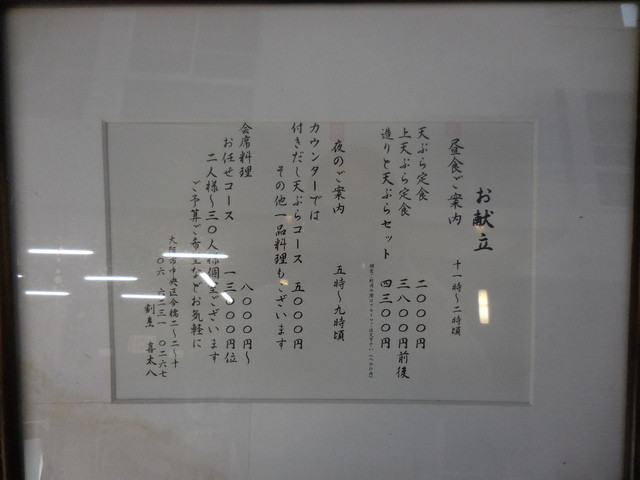 お献立
昼食ご案内 十一時～二時頃
天ぷら定食 二〇〇〇円
上天ぷら定食 三八〇〇円前後
造りと天ぷらセット 四三〇〇円
夜のご案内 五時～九時頃
カウンターでは
付きだし天ぷらコース 五〇〇〇円
その他一品料理もございます
会席料理 八〇〇〇円～
お任せコース 一三〇〇〇円位
二人様～三〇人様個室ございます
ご予算ご希望などお気軽に
大阪市中央区今橋二～二～十
〇六 六二三一 〇二六七
割烹 喜太八